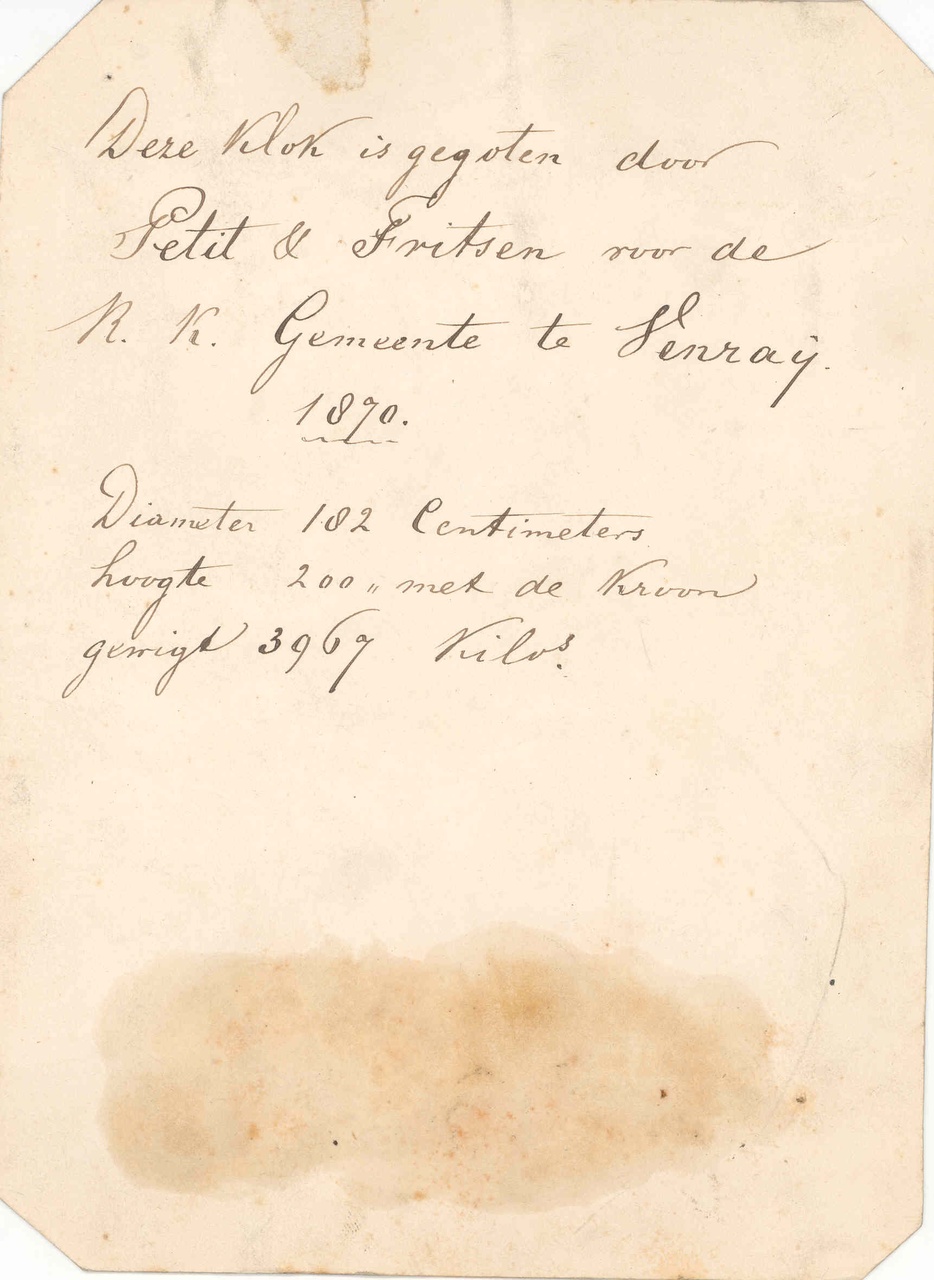 Deze Klok is gegoten door
Petit & Fritsen voor de
R. K. Gemeente te Venraÿ.
1870.
Diameter 182 Centimeters
hoogte 200 „ met de Kroon
gewigt 3967 Kilos.